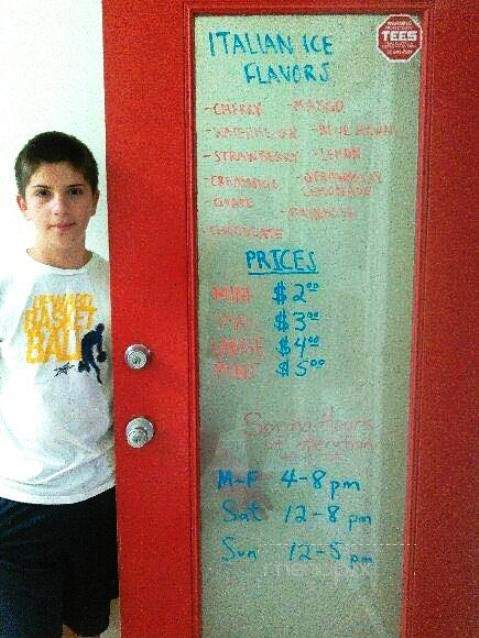 ITALIAN ICE
FLAVORS
TEES
-CHERRY -MANGO
-WATERMELON -BLUE HAWAII
-STRAWBERRY -LEMON
-CREAMSICLE -STRAWBERRY
LEMONADE
-GRAPE
-RAINBOW
-CHOCOLATE
PRICES
$2.00
$3.00
LARGE $4.00
$5.00
Spring Hours
of operation
M-F 4-8 pm
Sat 12-8 pm
Sun 12-5 pm
BASKET
BALL